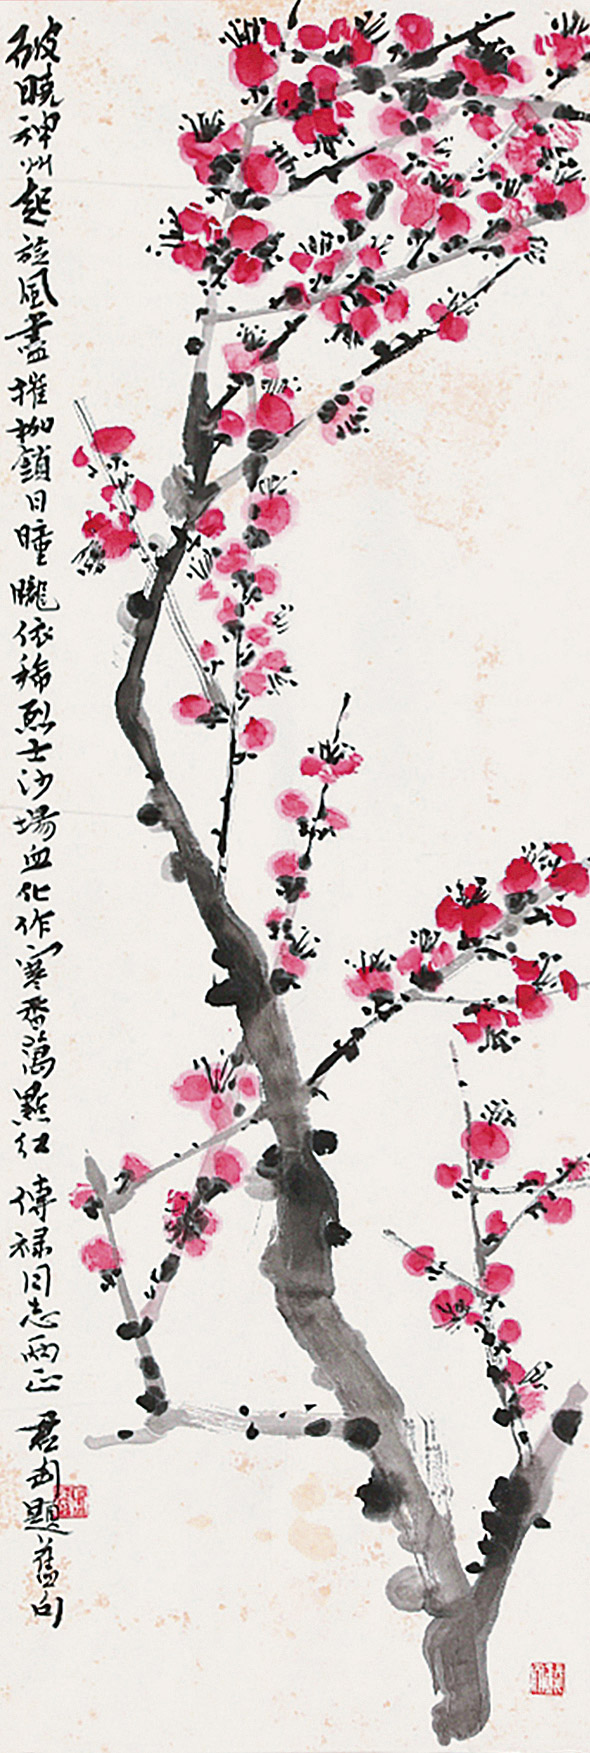 破曉神州起旋風盡摧枷鎖日曈曨依稀烈士沙場血化作寒香萬點紅 傳祿同志兩正 君匋題舊句